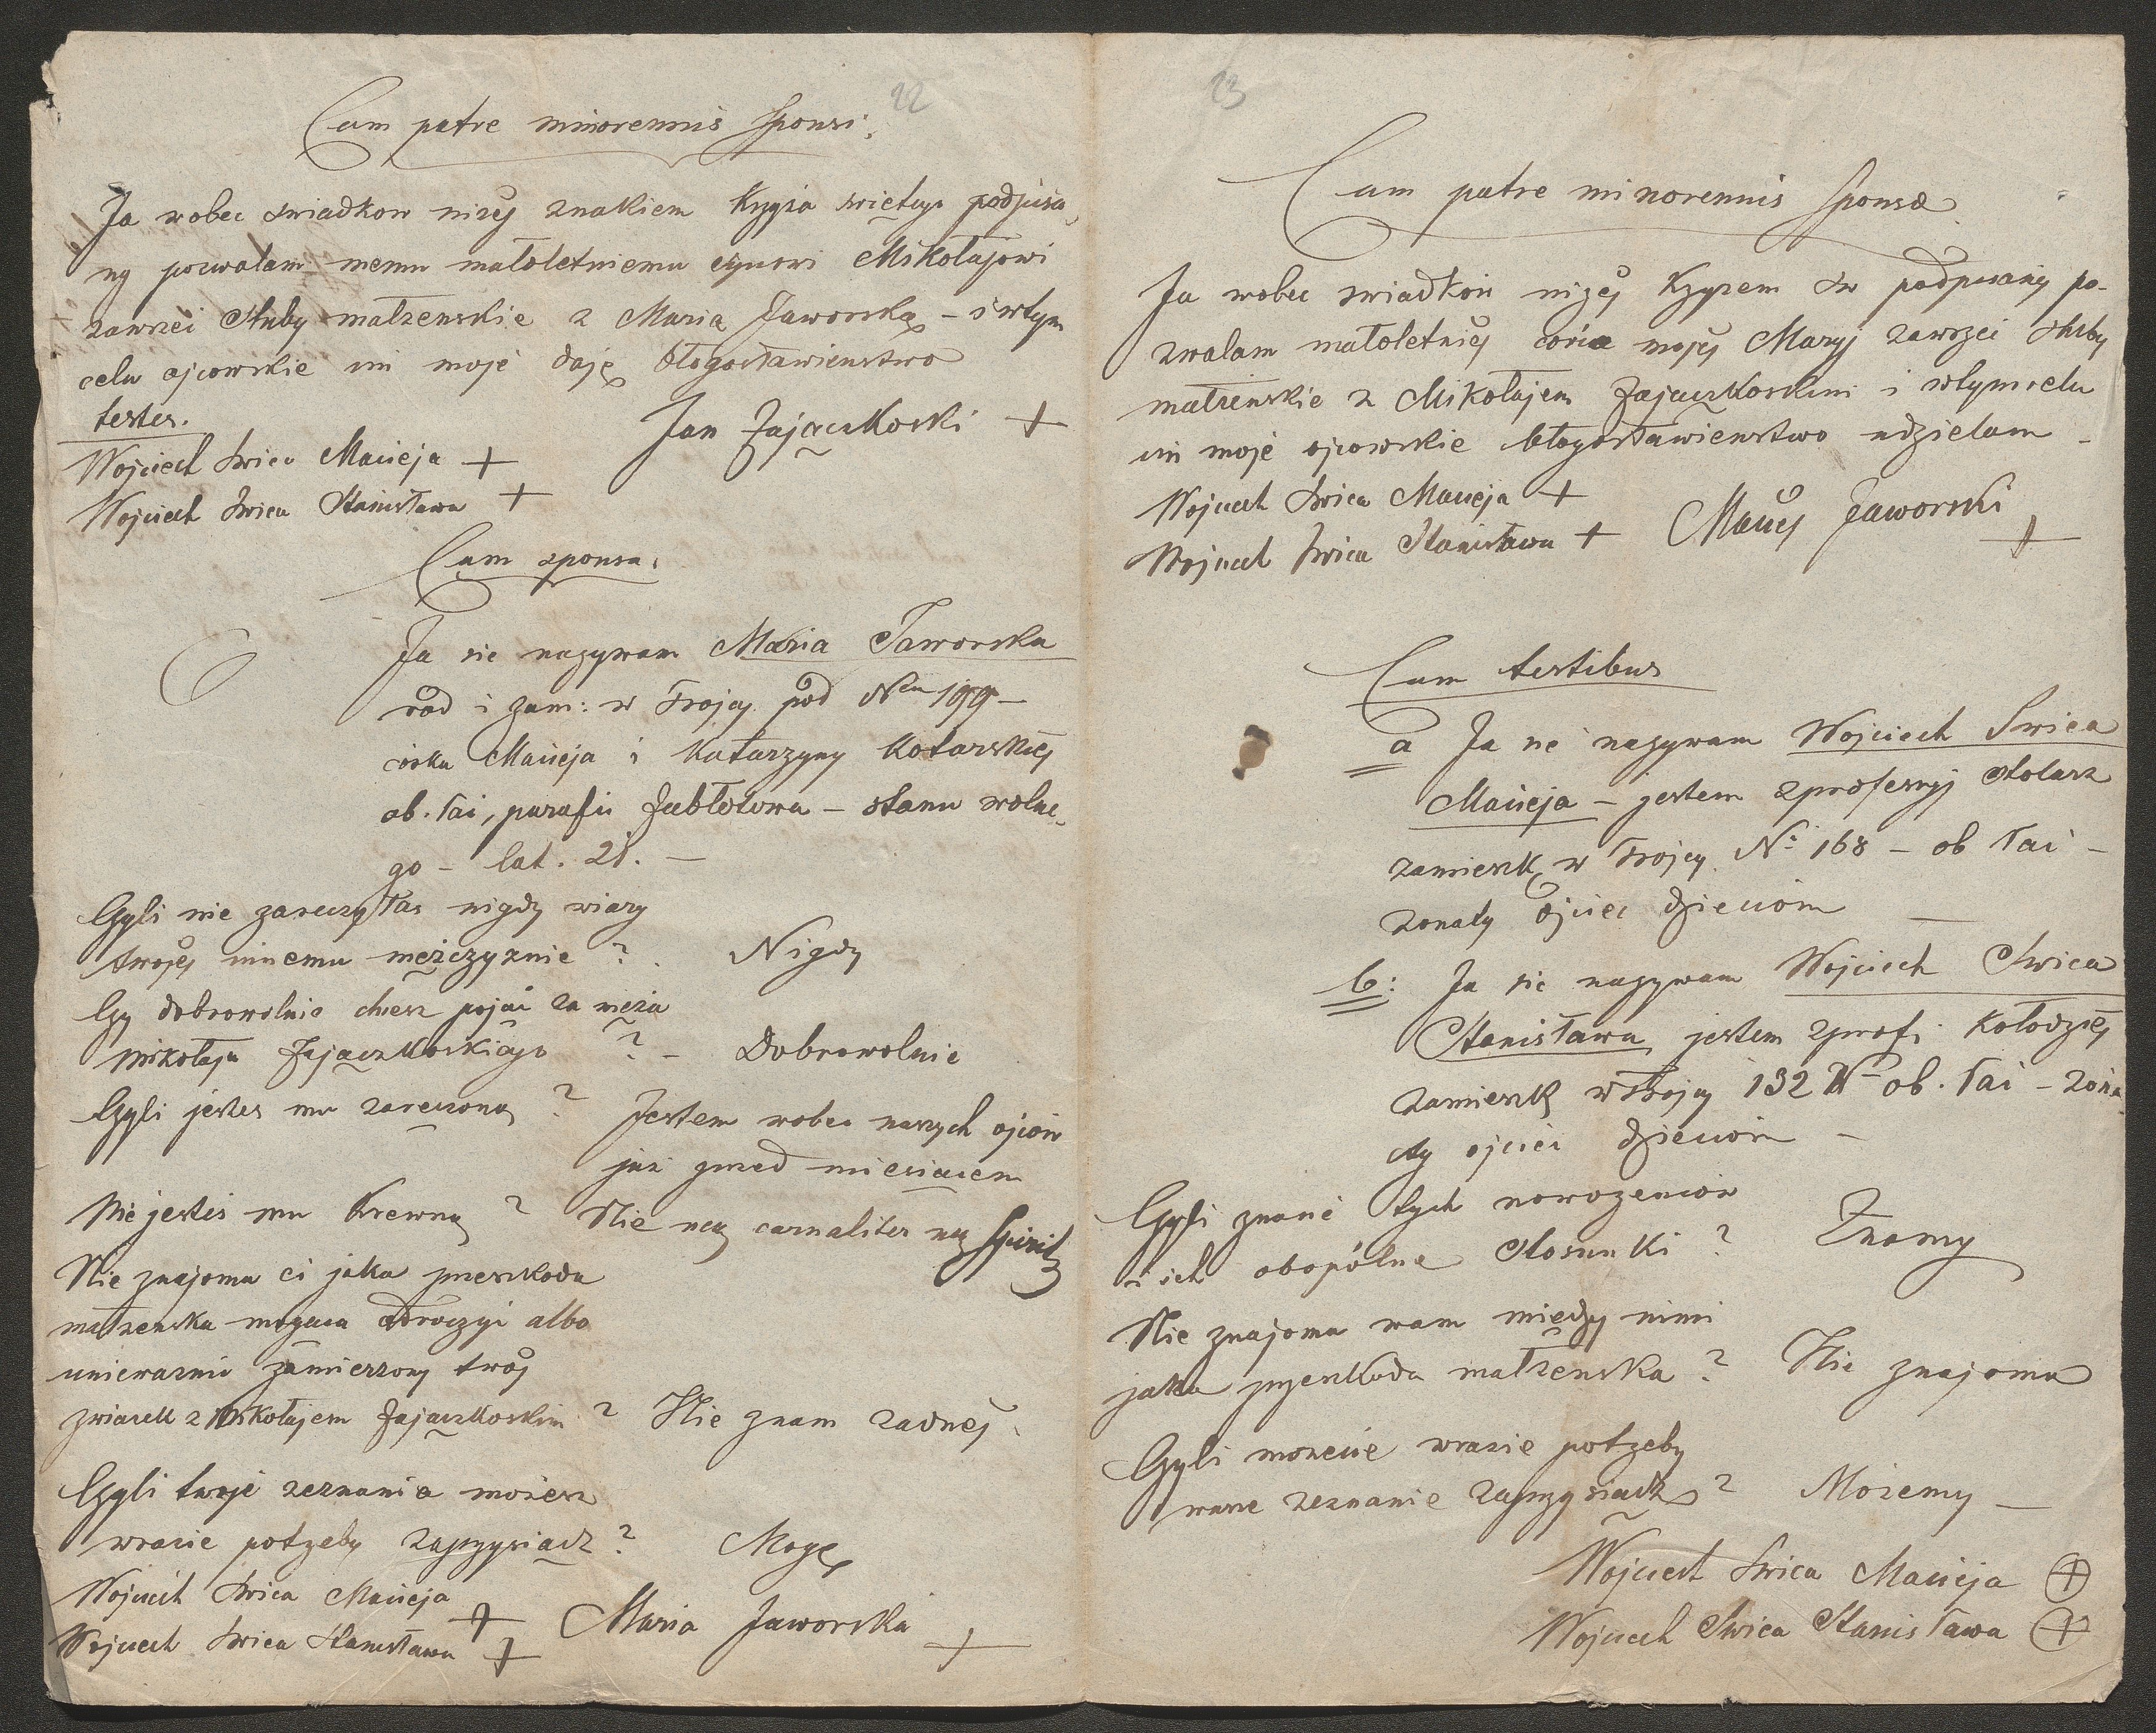 22
Cum patre minorennis sponsi.
Ja wobec swiadkow niżej znakiem Krzyża świętego podpisa-
ny pozwalam memu małoletniemu synowi Mikołajowi
zawrzeć śluby małżenskie z Maria Jaworską – i wtym
celu ojcowskie im moje daję błogosławienstwo
testes. Jan Zajaczkoski +
Wojciech Swica Macieja +
Wojciech Swica Stanisława +
Cum sponsa.
Ja sie nazywam Maria Jaworska
rod i zam: w Trojcy pod Nem 199 –
córka Macieja i Katarzyny Kotarskiej
ob. łaċ, parafii Zabłotowa – stanu wolne-
go – lat. 21. –
Czyli nie zareczyłas nigdy wiary
twojej innemu mężczyznie ? Nigdy
Czy dobrowolnie chcesz pojąć za męża
Mikołaja Zajaczkoskiego ? – Dobrowolnie
Czyli jestes mu zareczoną ? Jestem wobec naszych ojców
już przed miesiącem
Nie jesteś mu Krewną ? Nie neq carnaliter neq spirit
Nie znajoma ci jaka przeszkoda
małżenska mogąca odroczyć albo
unieważnić zamierzony twój
zwiazek z Mikołajem Zajaczkoskim ? Nie znam żadnéj.
Czyli twoje zeznania możesz
wrazie potrzeby zaprzysiadz ? Mogę
Wojciech Swica Macieja +
Wojciech Swica Stanisława + Maria Jaworska +
23
Cum patre minorennis sponsæ
Ja wobec swiadków niżéj Krzyzem św podpisany po-
zwalam małoletniéj córce mojéj Maryj zawrzeć śluby
małżenskie z Mikołajem Zajaczkoskim i wtym celu
im moje ojcowskie błogosławienstwo udzielam –
Wojciech Swica Macieja +
Wojciech Swica Stanisława + Maciej Jaworski +
Cum testibus
a Ja sie nazywam Wojciech Swica
Macieja – jestem zprofesyj stolarz
zamieszk w Trojcy No 168 – ob łaċ –
zonaty ojciec dzieciom –
b: Ja sie nazywam Wojciech Swica
Stanisława jestem zprofi kołodziéj
zamieszk w Trojcy 132 No ob. łaċ – żona-
ty ojciec dzieciom –
Czyli znacie tych nowożeńców
i ich obopólne stosunki ? Znamy
Nie znajoma wam między nimi
jaka przeszkoda małżenska ? Nie znajoma
Czyli możecie wrazie potrzeby
wasze zeznanie zaprzysiadz ? Możemy –
Wojciech Swica Macieja +
Wojciech Swica Stanisława +